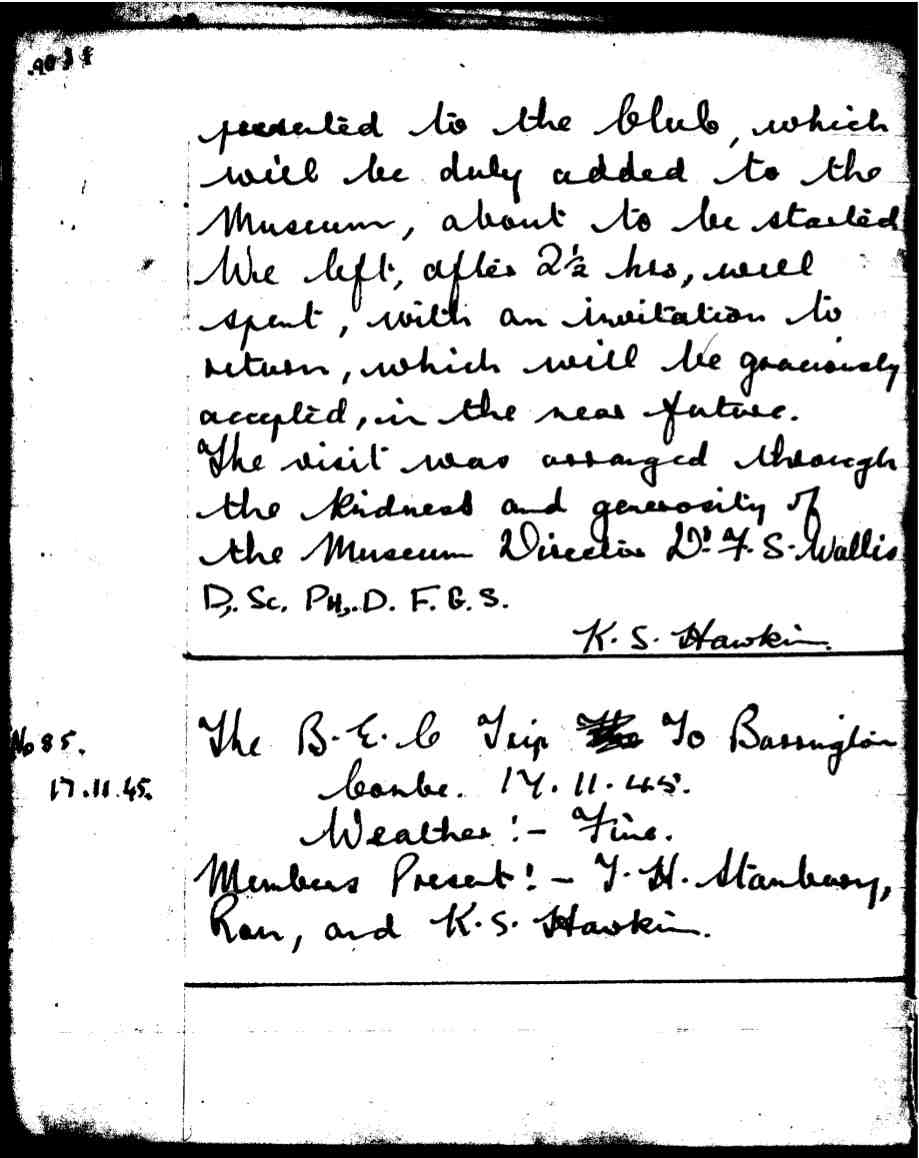 presented to the Club, which
will be duly added to the
Museum, about to be started
We left, after 2½ hrs, well
spent, with an invitation to
return, which will be graciously
accepted, in the near future.
The visit was arranged through
the kindness and generosity of
the Museum Director Dr. F. S. Wallis
D. Sc. PH. D. F. G. S.
K. S. Hawkin.
No 85.
17.11.45.
The B. E. C Trip To Barrington
Combe. 17. 11. 45.
Weather :- Fine.
Members Present :- T. H. Stanbury,
Ron, and K. S. Hawkin.